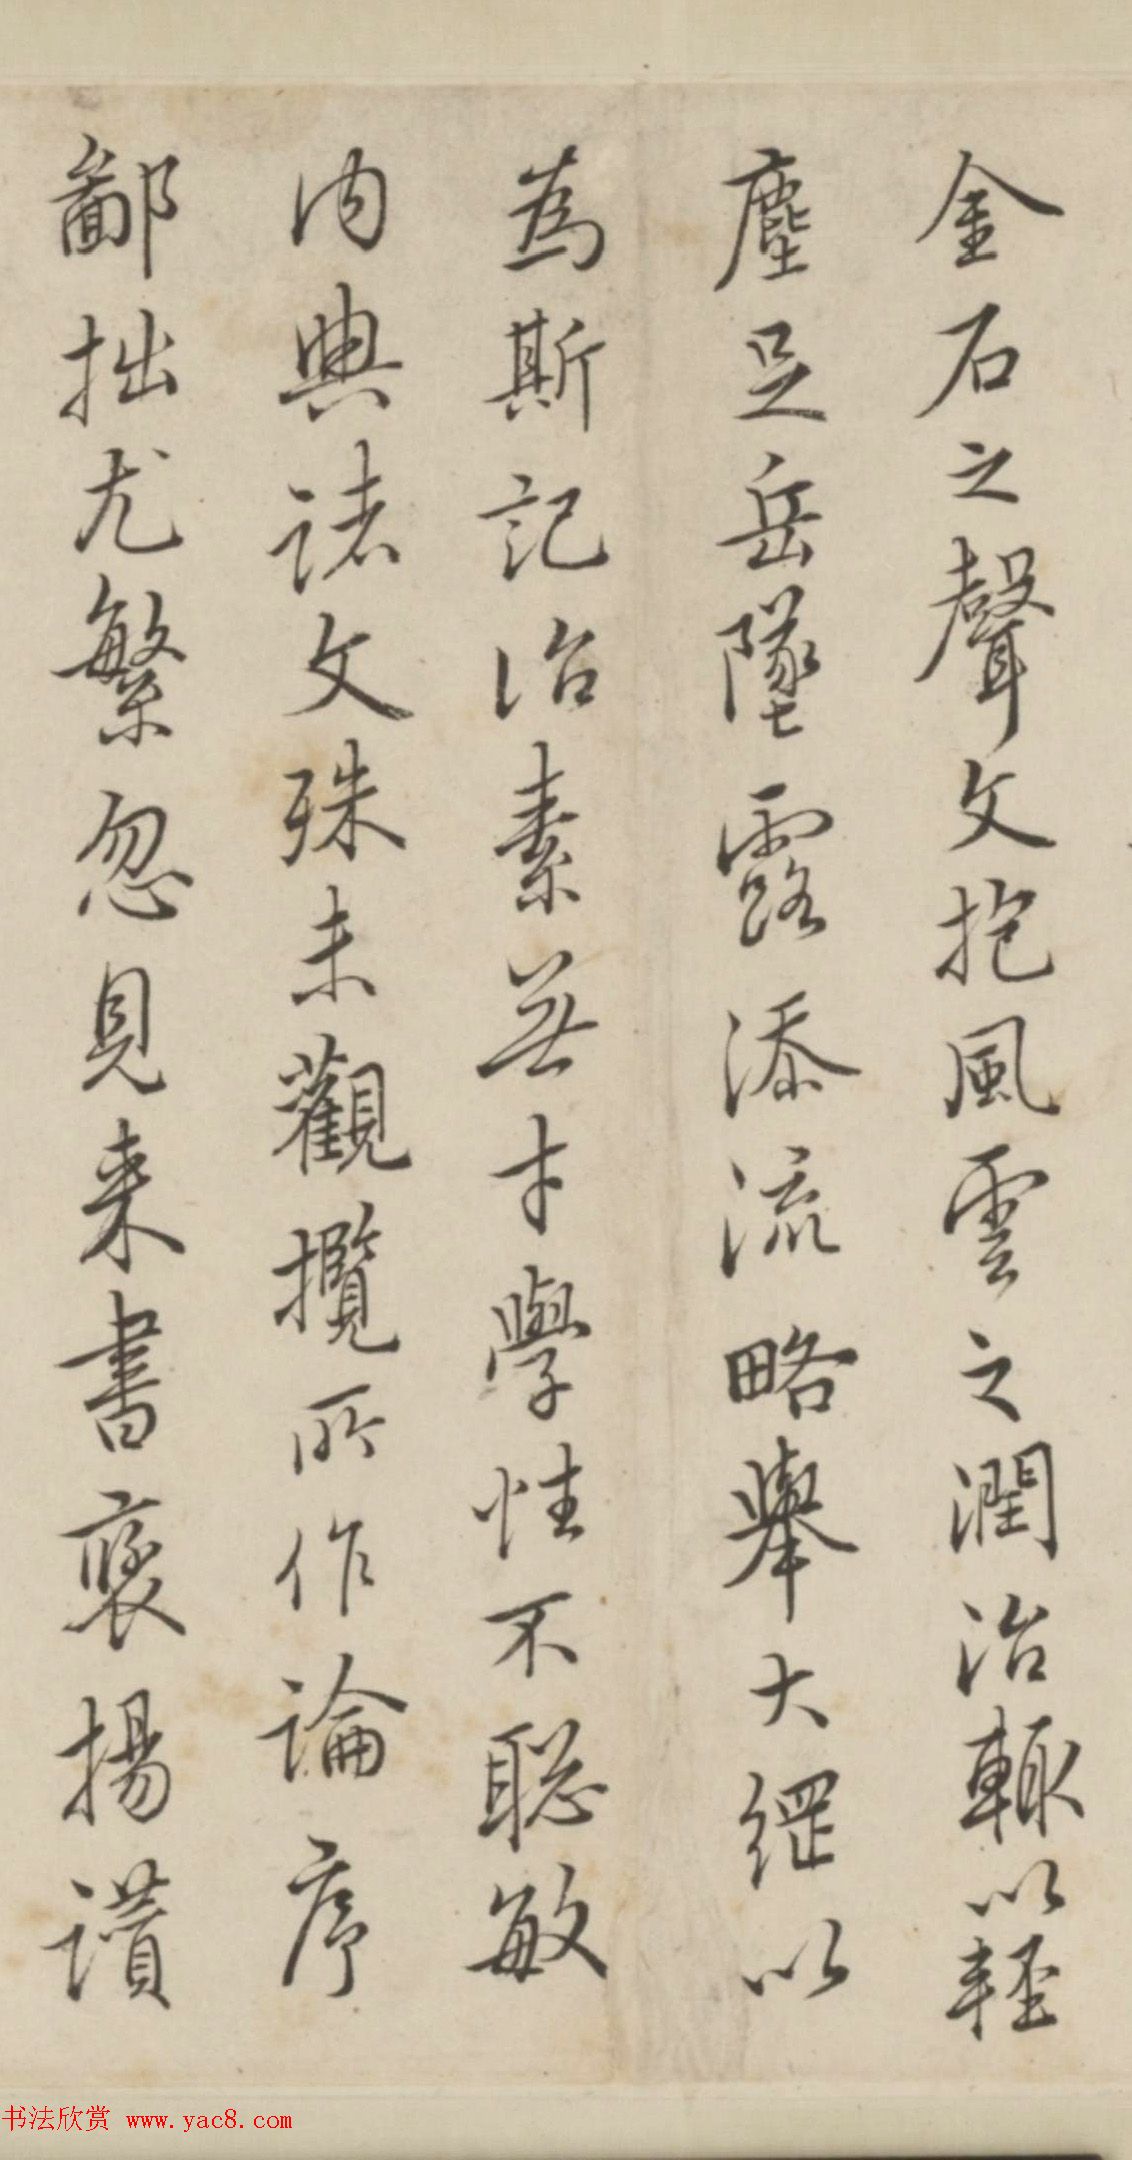 金石之聲文抱風雲之潤治輙以輕
塵足岳墜露添流略舉大綱以
為斯記治素無才學性不聡敏
内典諸文殊未觀攬所作論序
鄙拙尤繁忽見来書褒揚讃
书法欣赏 www.yac8.com